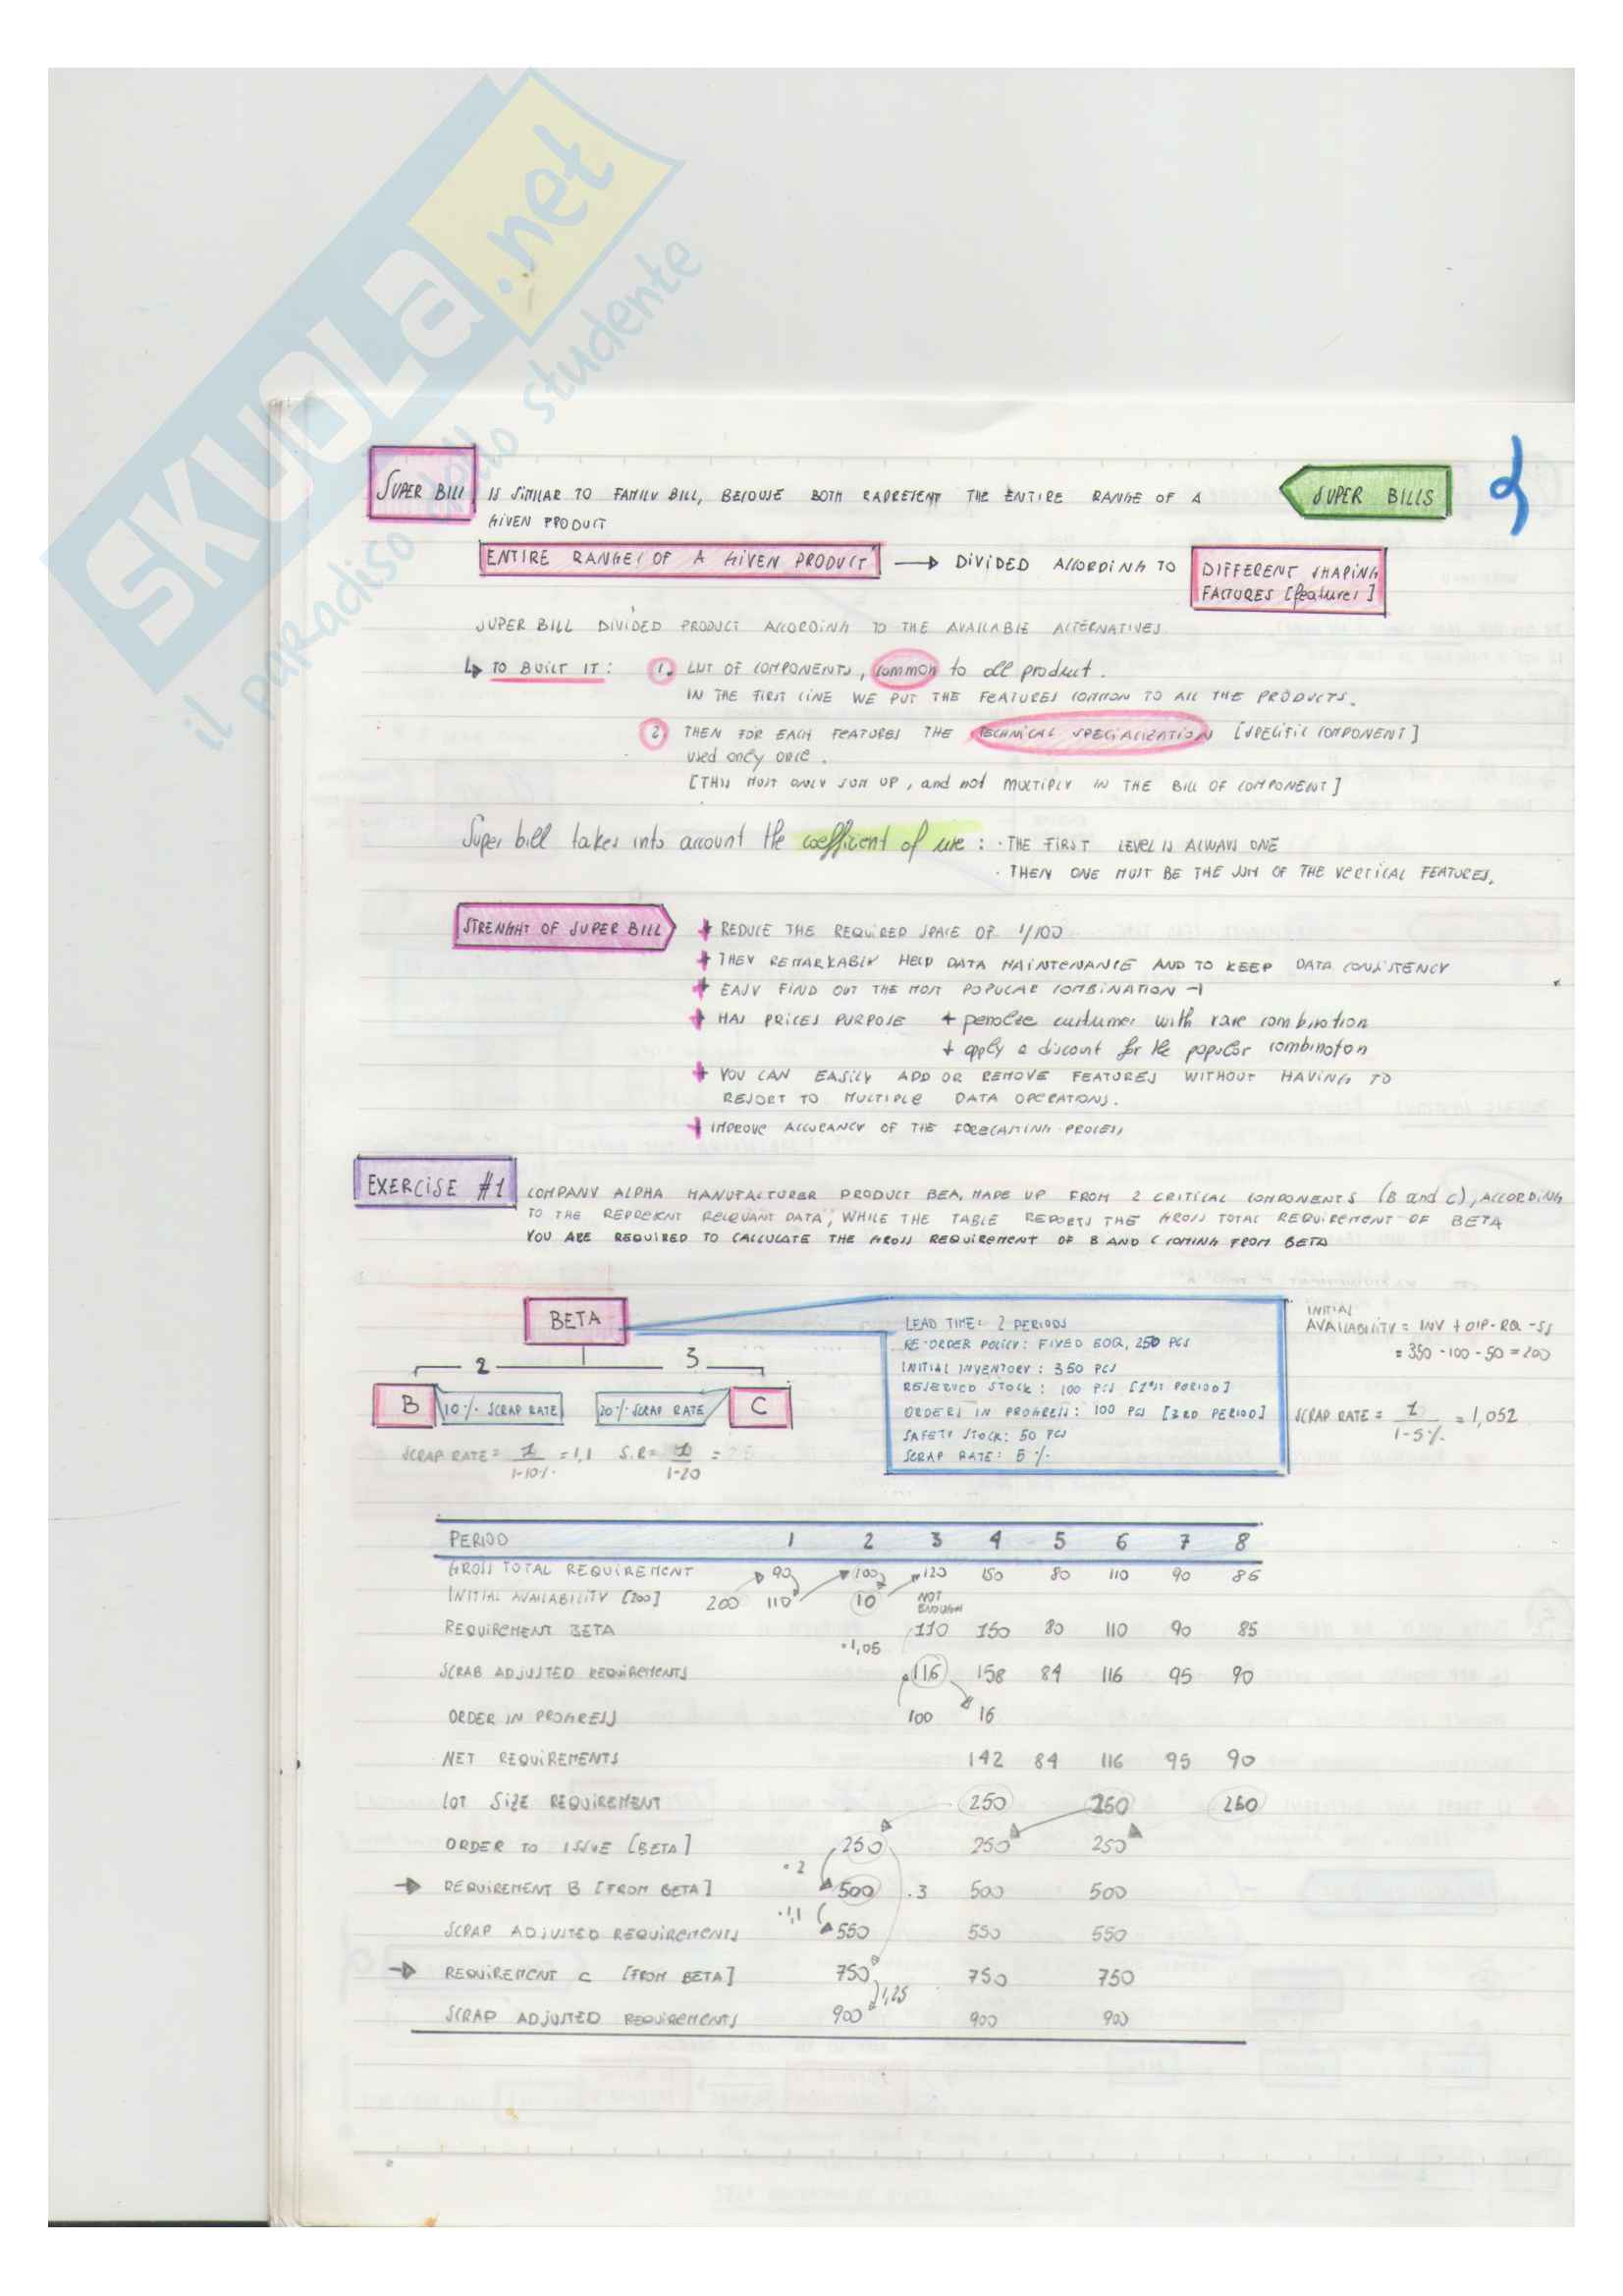 SKUOLA.net
il paradiso dello studente
SUPER BILL IS SIMILAR TO FAMILY BILL, BECOUSE BOTH RAPRESENT THE ENTIRE RANGE OF A
GIVEN PRODUCT
SUPER BILLS
ENTIRE RANGES OF A GIVEN PRODUCT → DIVIDED ACCORDING TO DIFFERENT SHAPING
FACTURES [features]
SUPER BILL DIVIDED PRODUCT ACCORDING TO THE AVAILABLE ALTERNATIVES
↳ TO BUILT IT: 1. LIST OF COMPONENTS, common to all product.
IN THE FIRST LINE WE PUT THE FEATURES COMMON TO ALL THE PRODUCTS.
2. THEN FOR EACH FEATURES THE TECHNICAL SPECIALIZATION [SPECIFIC COMPONENT]
used only once.
[THIS MUST ONLY SUM UP, and not MULTIPLY IN THE BILL OF COMPONENT]
Super bill takes into account the coefficient of use: · THE FIRST LEVEL IS ALWAYS ONE
· THEN ONE MUST BE THE SUM OF THE VERTICAL FEATURES.
STRENGHT OF SUPER BILL + REDUCE THE REQUIRED SPACE OF 1/100
+ THEY REMARKABLY HELP DATA MAINTENANCE AND TO KEEP DATA CONSISTENCY
+ EASY FIND OUT THE MOST POPULAR COMBINATION
+ HAS PRICES PURPOSE + penalize custumer with rare combination
+ apply a discount for the popular combination
+ YOU CAN EASILY ADD OR REMOVE FEATURES WITHOUT HAVING TO
RESORT TO MULTIPLE DATA OPERATIONS.
+ IMPROVE ACCURANCY OF THE FORECASTING PROCESS
EXERCISE #1 COMPANY ALPHA MANUFACTURER PRODUCT BEA, MADE UP FROM 2 CRITICAL COMPONENTS (B and C), ACCORDING
TO THE REPRESENT RELEVANT DATA, WHILE THE TABLE REPORTS THE GROSS TOTAL REQUIREMENT OF BETA
YOU ARE REQUIRED TO CALCULATE THE GROSS REQUIREMENT OF B AND C COMING FROM BETA
BETA
2 3
B 10% SCRAP RATE 20% SCRAP RATE C
SCRAP RATE = 1/1-10% = 1,1 S.R = 1/1-20 =
LEAD TIME: 2 PERIODS
RE-ORDER POLICY: FIXED EOQ, 250 PCS
INITIAL INVENTORY: 350 PCS
RESERVED STOCK: 100 PCS [1st PORIOD]
ORDERS IN PROGRESS: 100 PCS [3RD PERIOD]
SAFETY STOCK: 50 PCS
SCRAP RATE: 5%
INITIAL
AVAILABILITY = INV + OIP - RQ - SS
= 350 - 100 - 50 = 200
SCRAP RATE = 1/1-5% = 1,052
PERIOD 1 2 3 4 5 6 7 8
GROSS TOTAL REQUIREMENT 90 100 120 150 80 110 90 85
INITIAL AVAILABILITY [200] 200 110 10 NOT
ENOUGH
REQUIREMENT BETA 110 150 80 110 90 85
·1,05
SCRAB ADJUSTED REQUIREMENTS 116 158 84 116 95 90
ORDER IN PROGRESS 100 16
NET REQUIREMENTS 142 84 116 95 90
LOT SIZE REQUIREMENT 250 250 250
ORDER TO ISSUE [BETA] 250 250 250
·2
→ REQUIREMENT B [FROM BETA] 500 ·3 500 500
·1,1
SCRAP ADJUSTED REQUIREMENTS 550 550 550
→ REQUIREMENT C [FROM BETA] 750 750 750
1,25
SCRAP ADJUSTED REQUIREMENTS 900 900 900